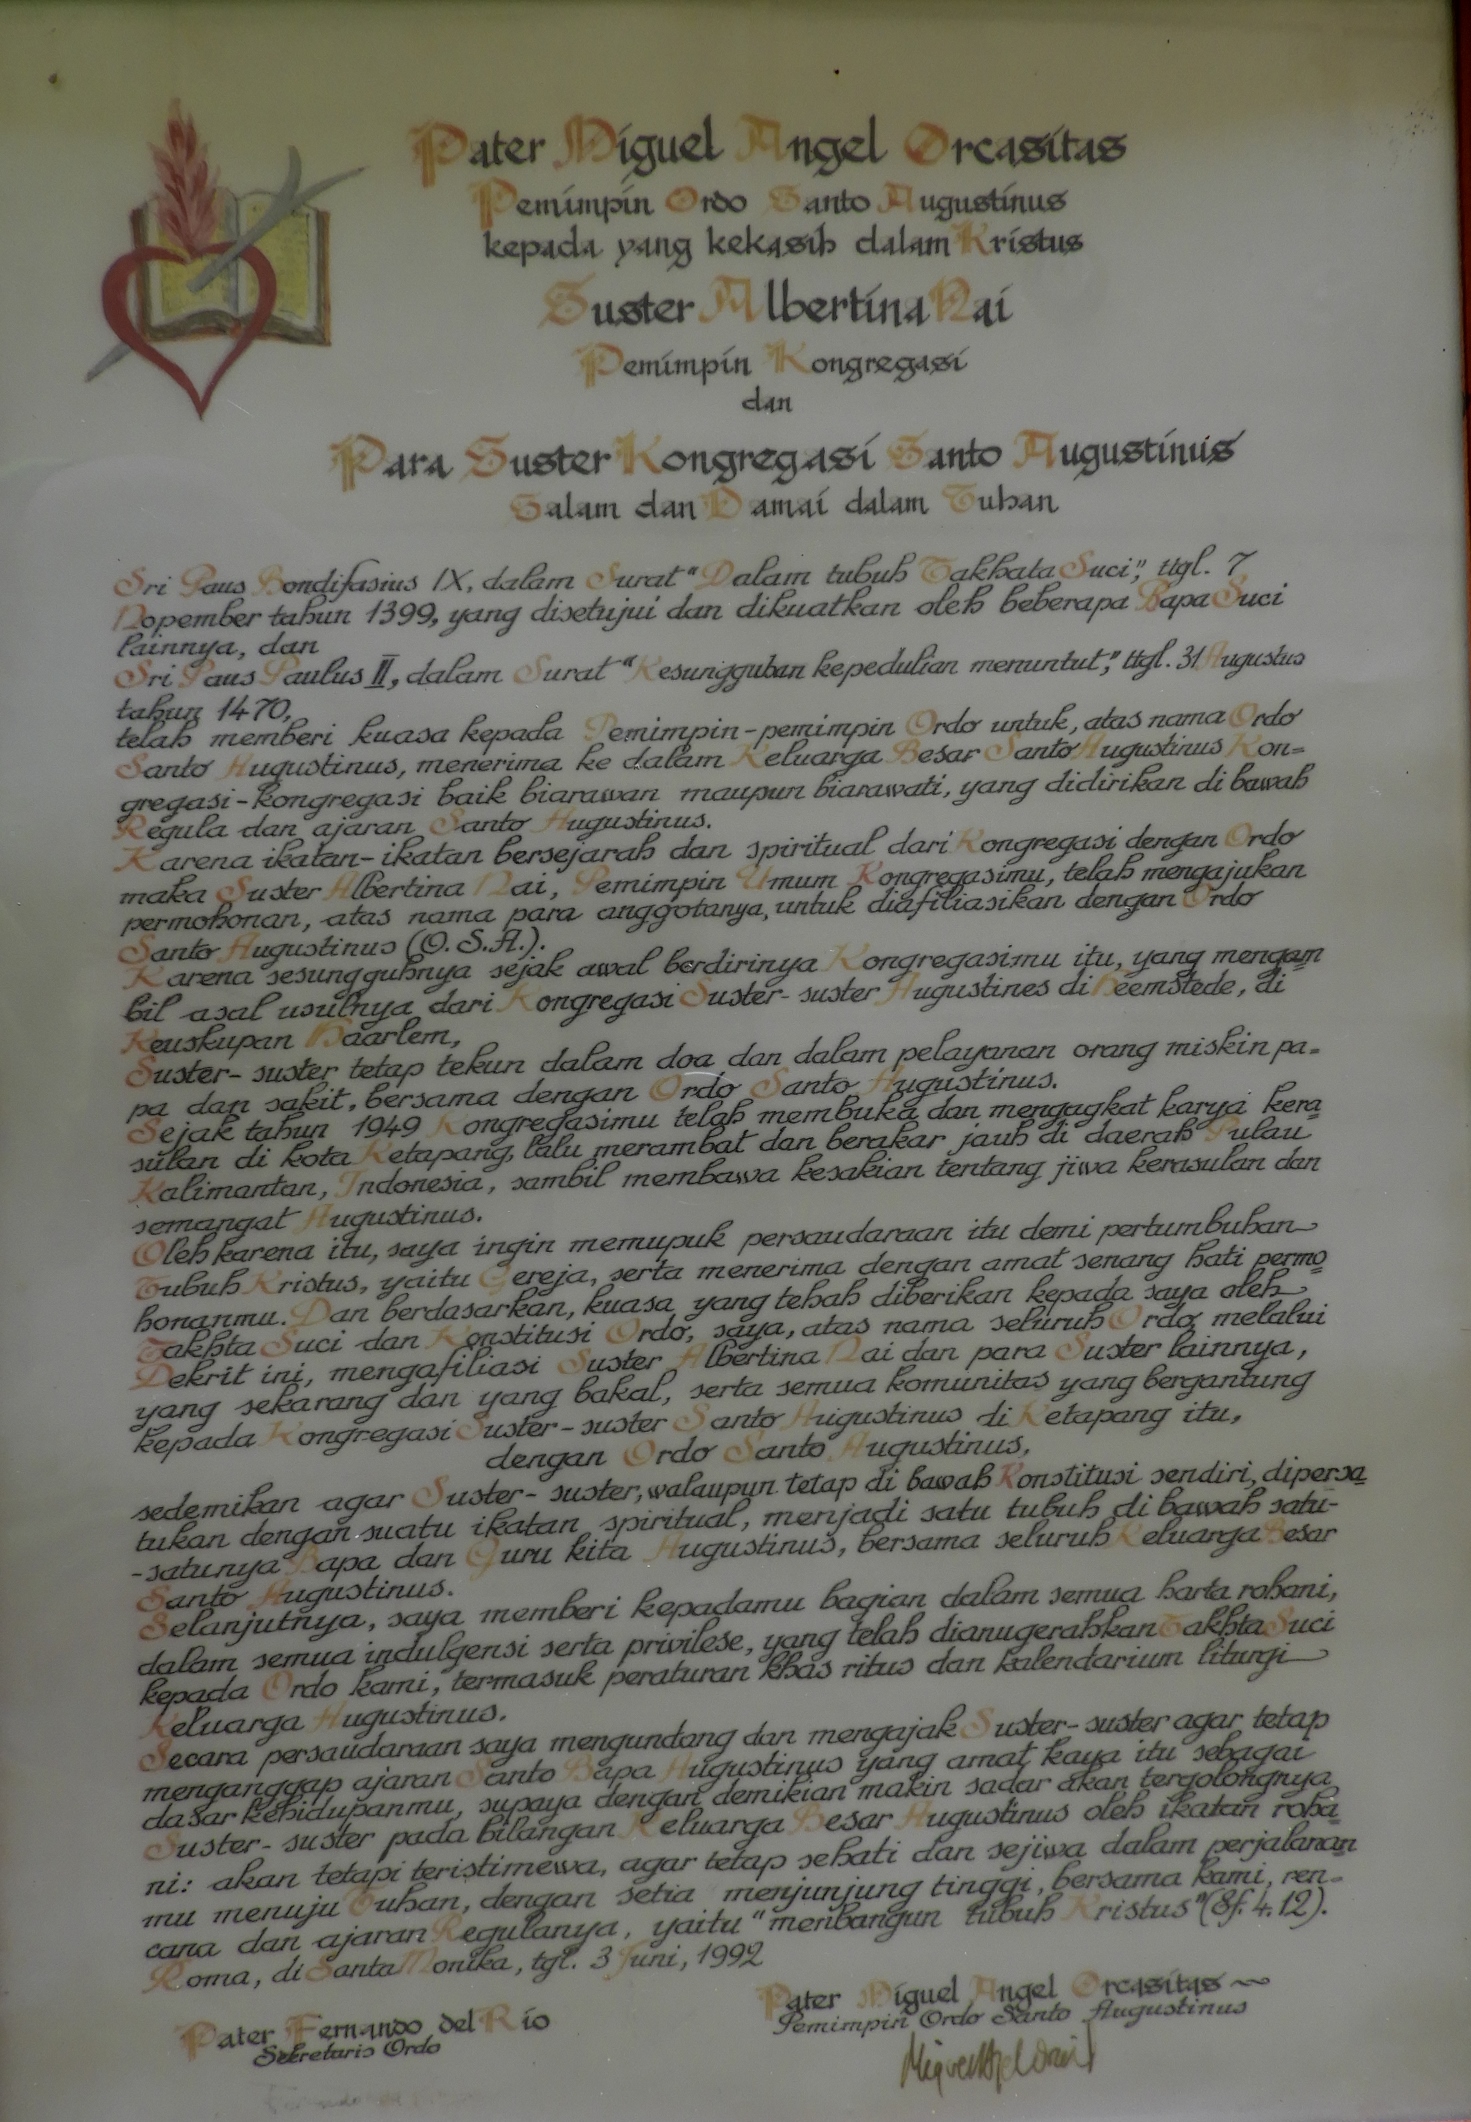 Pater Miguel Angel Orcasitas
Pemimpin Ordo Santo Augustinus
kepada yang kekasih dalam Kristus
Suster Albertina Nai
Pemimpin Kongregasi
dan
Para Suster Kongregasi Santo Augustinus
Salam dan Damai dalam Tuhan
Sri Paus Bondifasius IX, dalam Surat "Dalam tubuh Takhata Suci", ttgl. 7
Nopember tahun 1399, yang disetujui dan dikuatkan oleh beberapa Bapa Suci
lainnya, dan
Sri Paus Paulus II, dalam Surat "Kesungguhan kepedulian menuntut", ttgl. 31 Augustus
tahun 1470,
telah memberi kuasa kepada Pemimpin-pemimpin Ordo untuk, atas nama Ordo
Santo Augustinus, menerima ke dalam Keluarga Besar Santo Augustinus Kon=
gregasi-kongregasi baik biarawan maupun biarawati, yang didirikan di bawah
Regula dan ajaran Santo Augustinus.
Karena ikatan-ikatan bersejarah dan spiritual dari Kongregasi dengan Ordo
maka Suster Albertina Nai, Pemimpin Umum Kongregasimu, telah mengajukan
permohonan, atas nama para anggotanya, untuk diafiliasikan dengan Ordo
Santo Augustinus (O.S.A.).
Karena sesungguhnya sejak awal berdirinya Kongregasimu itu, yang mengam
bil asal usulnya dari Kongregasi Suster-suster Augustines di Heemstede, di
Keuskupan Haarlem,
Suster-suster tetap tekun dalam doa dan dalam pelayanan orang miskin pa=
pa dan sakit, bersama dengan Ordo Santo Augustinus.
Sejak tahun 1949 Kongregasimu telah membuka dan mengagkat karya kera
sulan di kota Ketapang, lalu merambat dan berakar jauh di daerah Pulau
Kalimantan, Indonesia, sambil membawa kesakian tentang jiwa kerasulan dan
semangat Augustinus.
Oleh karena itu, saya ingin memupuk persaudaraan itu demi pertumbuhan
Tubuh Kristus, yaitu Gereja, serta menerima dengan amat senang hati permo
honanmu. Dan berdasarkan, kuasa yang tehah diberikan kepada saya oleh
Takhta Suci dan Konstitusi Ordo, saya, atas nama seluruh Ordo, melalui
Dekrit ini, mengafiliasi Suster Albertina Nai dan para Suster lainnya,
yang sekarang dan yang bakal, serta semua komunitas yang bergantung
kepada Kongregasi Suster-suster Santo Augustinus di Ketapang itu,
dengan Ordo Santo Augustinus,
sedemikan agar Suster-suster, walaupun tetap di bawah Konstitusi sendiri, dipersa
tukan dengan suatu ikatan spiritual, menjadi satu tubuh di bawah satu-
-satunya Bapa dan Guru kita Augustinus, bersama seluruh Keluarga Besar
Santo Augustinus.
Selanjutnya, saya memberi kepadamu bagian dalam semua harta rohani,
dalam semua indulgensi serta privilese, yang telah dianugerahkan Takhta Suci
kepada Ordo kami, termasuk peraturan khas ritus dan kalendarium liturgi
Keluarga Augustinus.
Secara persaudaraan saya mengundang dan mengajak Suster-suster agar tetap
menganggap ajaran Santo Bapa Augustinus yang amat kaya itu sebagai
dasar kehidupanmu, supaya dengan demikian makin sadar akan tergolongnya
Suster-suster pada bilangan Keluarga Besar Augustinus oleh ikatan roha
ni: akan tetapi teristimewa, agar tetap sehati dan sejiwa dalam perjalanan
mu menuju Tuhan, dengan setia menjunjung tinggi, bersama kami, ren=
cana dan ajaran Regulanya, yaitu "menbangun tubuh Kristus" (Ef. 4.12).
Roma, di Santa Monika, tgl. 3 Juni, 1992
Pater Miguel Angel Orcasitas
Pemimpin Ordo Santo Augustinus
Pater Fernando del Rio
Sekretaris Ordo